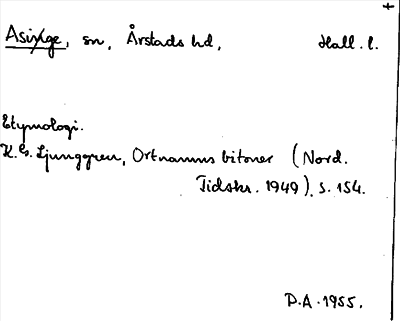 Asige, sn, Årstads hd, Hall. l.
Etymologi.
K. G. Ljunggren, Ortnamns bitoner (Nord.
Tidskr. 1949), s. 154.
D.A. 1955.